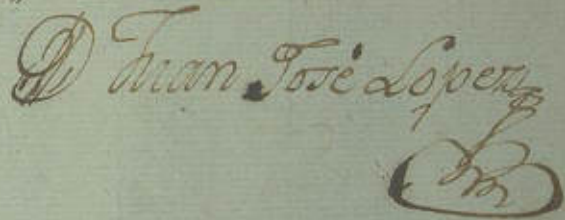 D Juan José Lopez